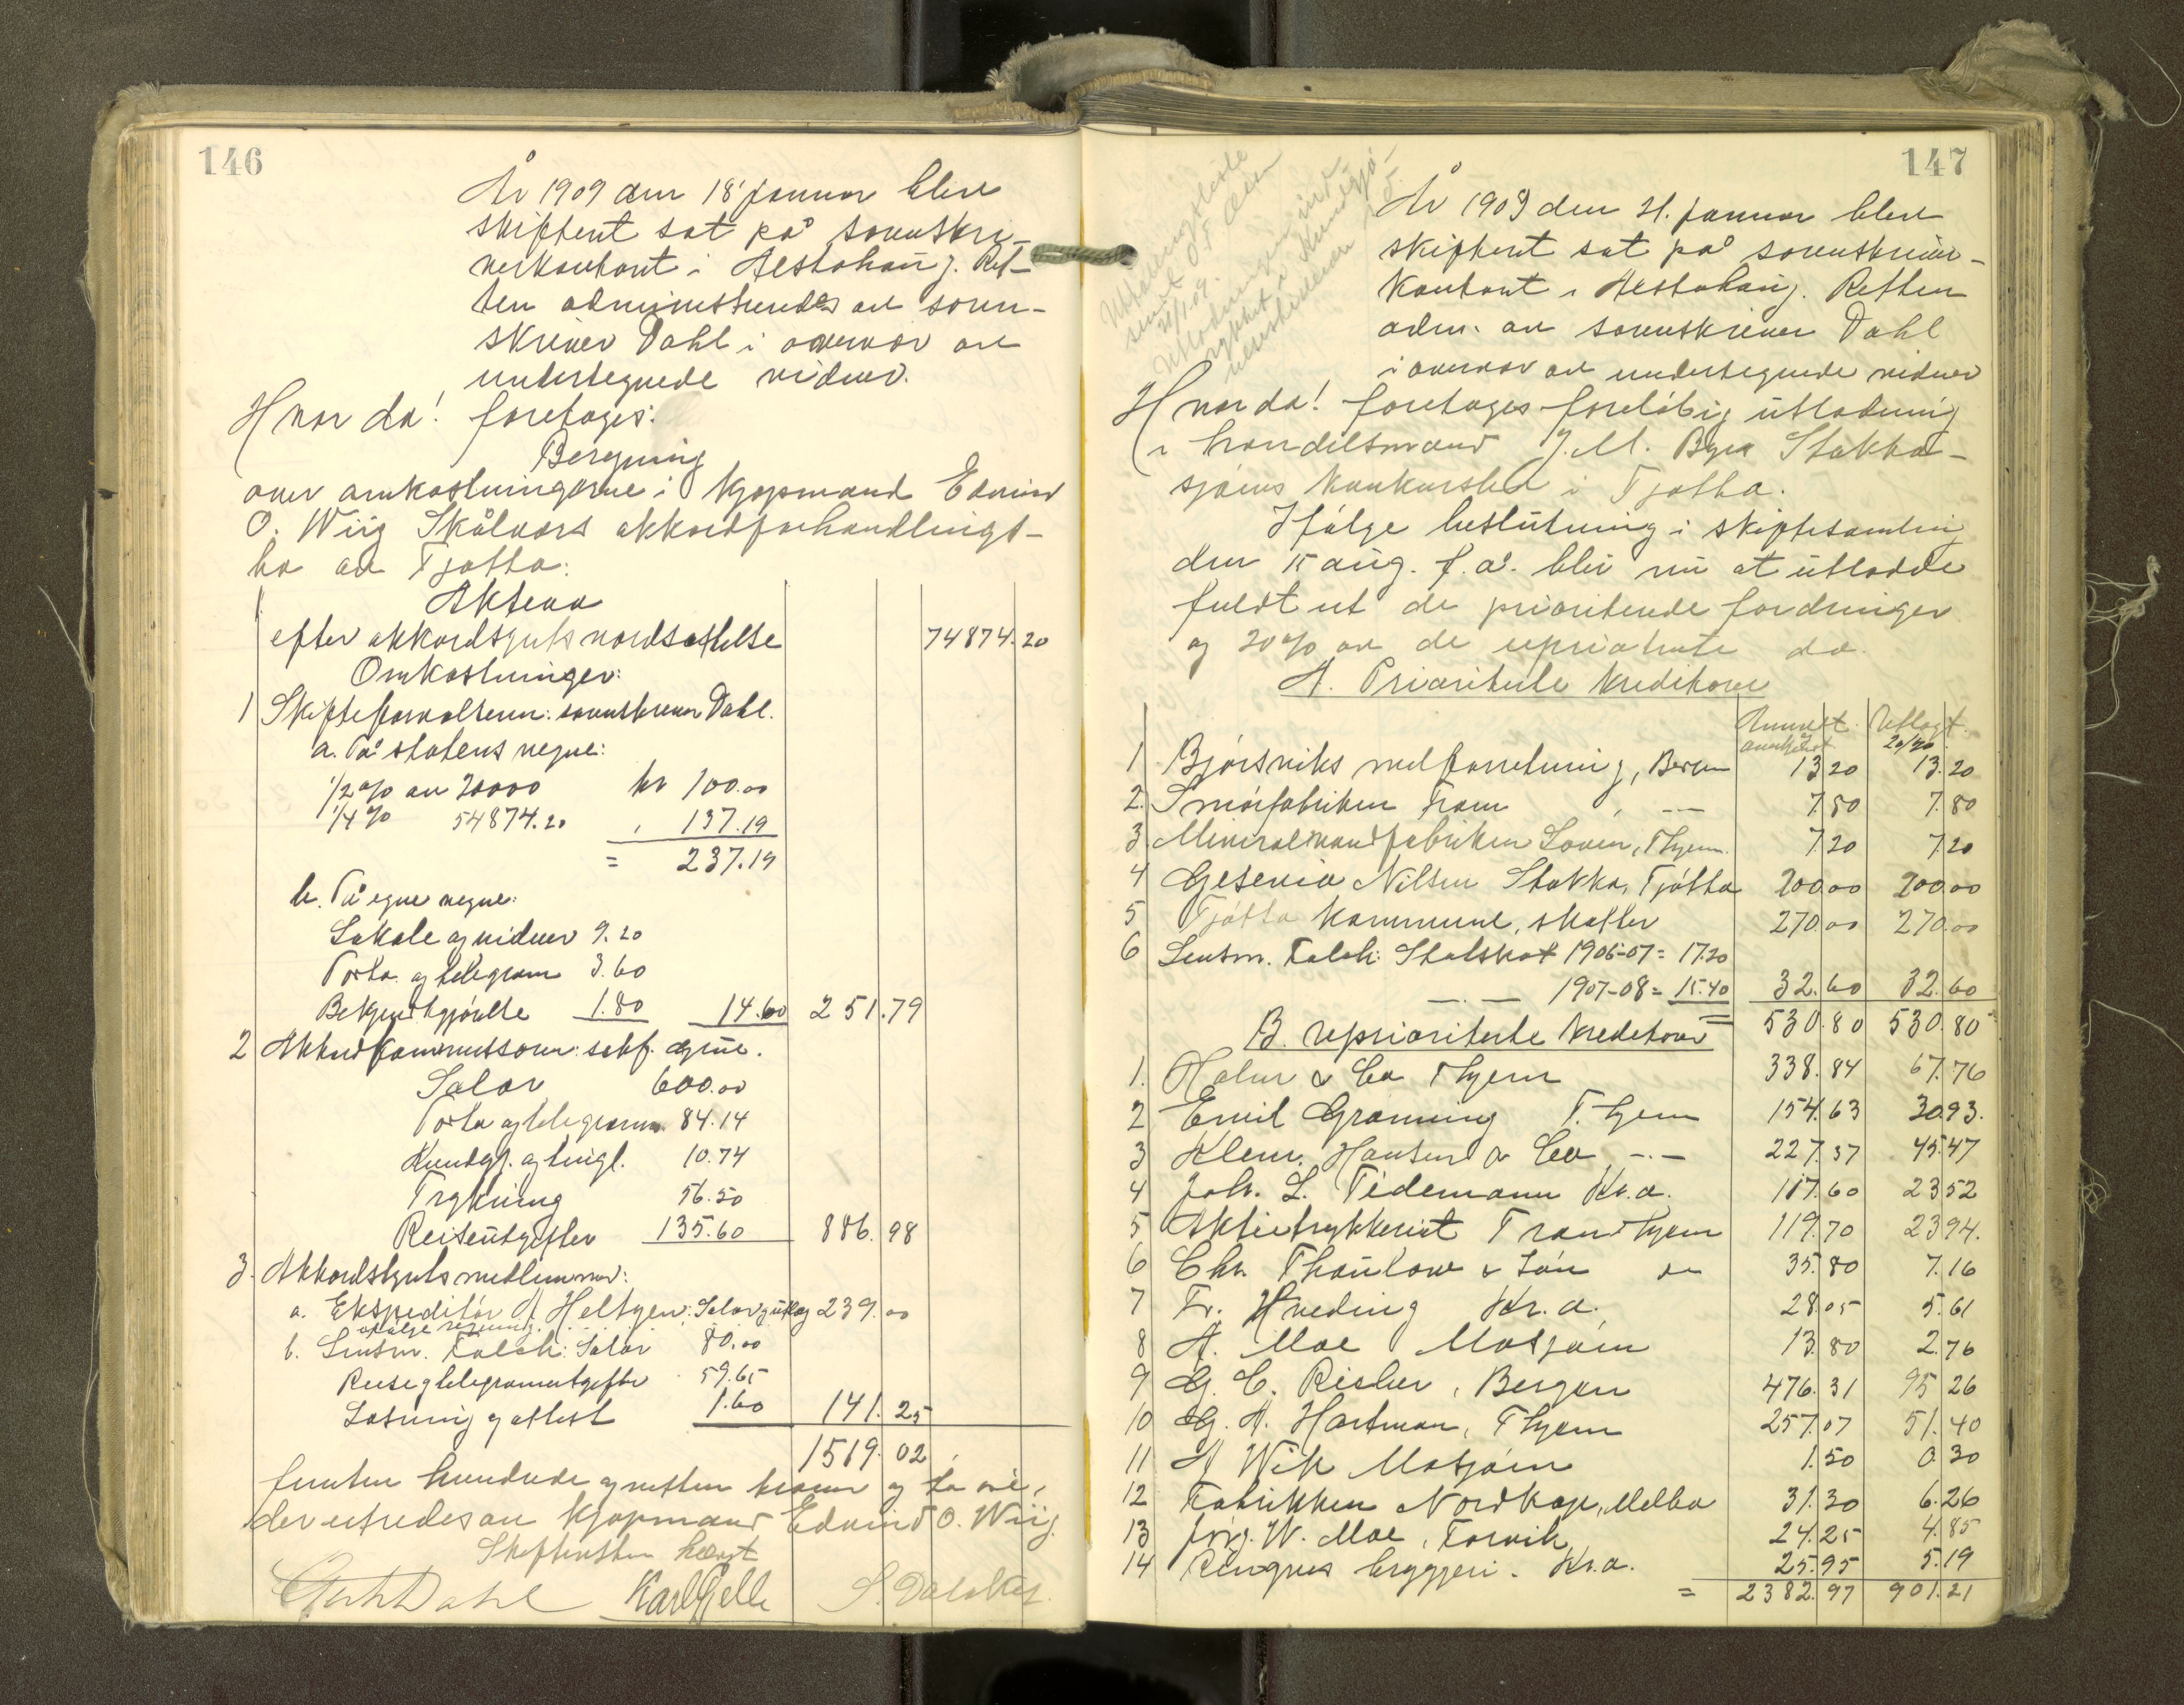 146
År 1909 den 18 januar blev
skifteret sat på sorenskri-
verkontoret i Alstahaug. Ret-
ten administreredes av soren-
skriver Dahl i overvær av
undertegnede vidner.
Hvor da! foretoges:
Beregning
over omkostningerne i kjøpmand Edvind
O. Wiig Skålværs akkordforhandlings-
bo av Tjøtta:
Aktiva
efter akkordstyrets værdsættelse 74874.20
Omkostninger:
1 Skifteforvalteren: sorenskriver Dahl.
a. På statens vegne:
1/2 % av 20000 kr 100.00
1/4 % 54874.20 " 137.19
= 237.19
b. På egne vegne:
Lokale og vidner 9.20
Porto og telegram 3.60
Bekjendtgjørelse 1.80 14.60 251.79
2 Akkordkommissæren: sakf.
Salær 600.00
Porto og telegrammer 84.14
Kundgj. og tingl. 10.74
Trykning 56.50
Reiseutgifter 135.60 886.98
3. Akkordstyrets medlemmer:
a. Ekspeditør A Heltzen: Salær og utlæg 239.00
ifølge regning.
b. Lensm. Falch: Salær 80.00
Reise og telegramutgifter 59.65
Løsning og attest 1.60 141.25
1519.02
femten hundrede og nitten kroner og to øre,
der utredes av kjøpmand Edvind O. Wiig.
Skifteretten hævet
Dahl Karl Gjelle S. Dalsker
147
Utlodningsliste
sendt O.F. Olsen
21/1.09.
Utlodningen ind-
rykket i Kundgjø-
relsestidende
År 1909 den 21. januar blev
skifteret sat på sorenskriver-
kontoret i Alstahaug. Retten
adm. av sorenskriver Dahl
i overvær av undertegnede vidner
Hvor da! foretoges foreløbig utlodning
i handelsmand J. M. Bys Stokka-
sjøens konkursbo i Tjøtta.
Ifølge beslutning i skiftesamling
den 15 aug. f.å. blir nu at utlodde
fuldt ut de prioriterte fordringer
og 20 % av de uprioriterte do.
A. Prioriterte kreditorer
Anmeldt Utlagt.
anerkjendt 20 %
1 Bjørsviks melforretning, Bergen 13.20 13.20
2. Smørfabriken Fram " — 7.80 7.80
3. Mineralvandfabriken Loven, Thjem. 7.20 7.20
4 Gjesevia Nilsen Stokka, Tjøtta 200.00 200.00
5 Tjøtta kommune, skatter 270.00 270.00
6 Lensm. Falch: Statsskat 1906-07 = 17.20
—.— 1907-08 = 15.40 32.60 32.60
530.80 530.80
B. uprioriterte kreditorer
1. Holm & Co Thjem 338.84 67.76
2 Emil Gramming Thjem 154.63 30.93.
3 Klem. Hansen & Co —.— 227.37 45.47
4 Joh. L. Tidemann Kr.a. 117.60 23.52
5 Aktietrykkeriet Trondhjem 119.70 23.94.
6 Chr. Thaulow & Søn do 35.80 7.16
7 Fr. Hveding Kr.a. 28.05 5.61
8 A. Moe Mosjøen 13.80 2.76
9 G. C. Rieber, Bergen 476.31 95.26
10 G. A. Hartman, Thjem 257.07 51.40
11 A Wik Mosjøen 1.50 0.30
12 Fabrikken Nordkap, Melbo 31.30 6.26
13 Jørg. W. Moe, Forvik 24.25 4.85
14 Ringnes bryggeri. Kr.a. 25.95 5.19
= 2382.97 901.21